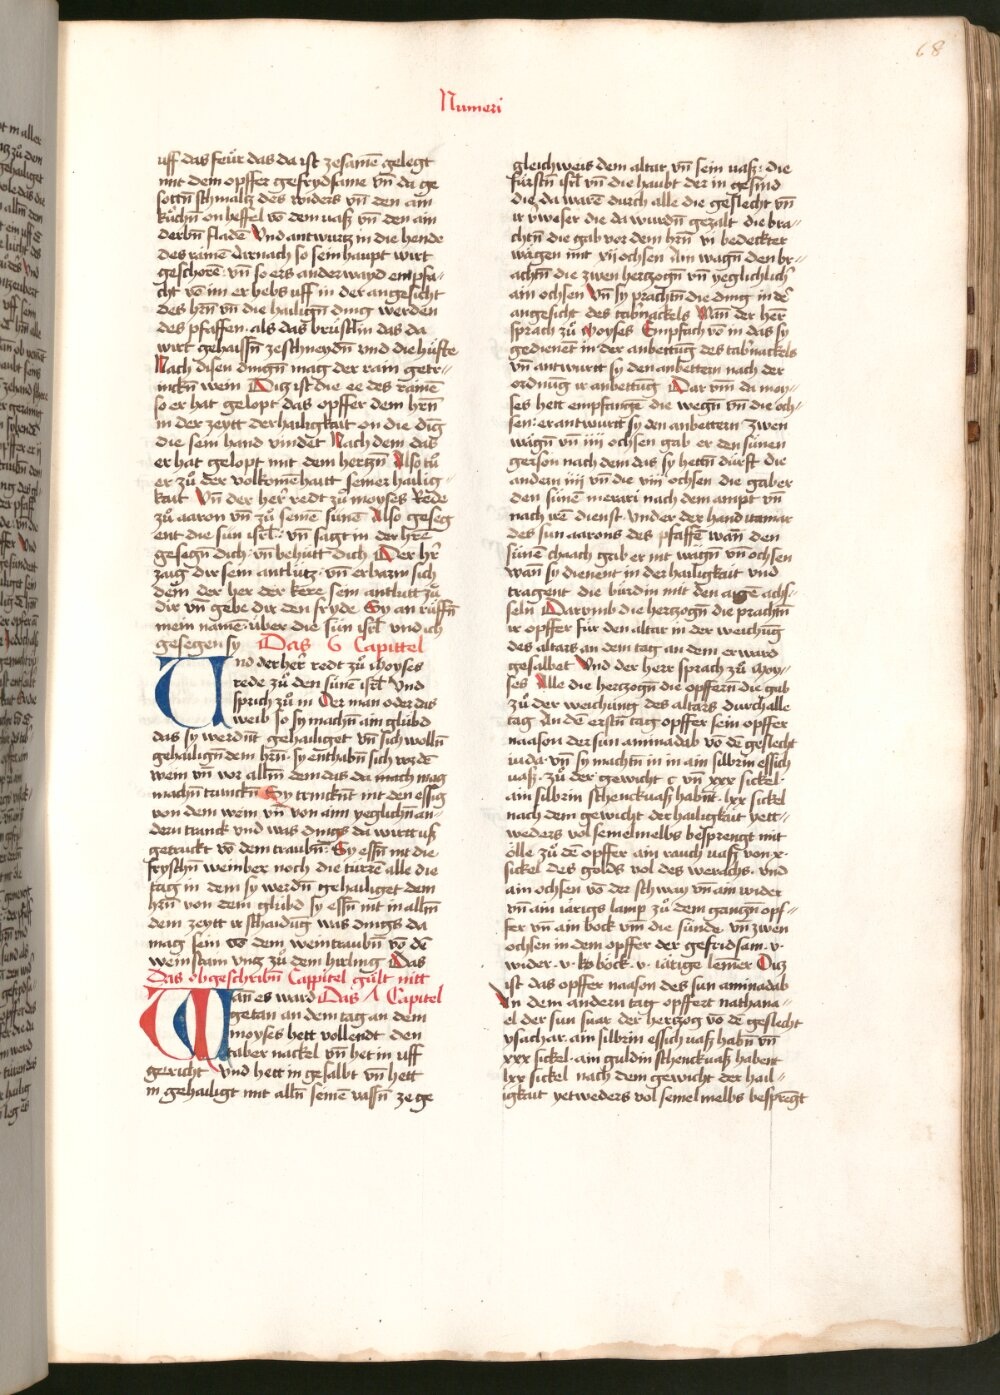 68
Numeri
uff das feür das da ist zesamē gelegt
mit dem opffer gefrydsame vn̄ da ge
sottn̄ schmaltz des widers vn̄ den ain
kůchn̄ on heffel vō dem vaß vn̄ den ain
derbn̄ fladē Vnd antwurtz in die hende
des rainē Darnach so sein haupt wirt
geschorē vn̄ so ers anderwayd empfa//
cht vō im er hebs uff in der angesicht
des hrn̄ vn̄ die hailign̄ ding werden
des pfaffen als das brüstlin das da
wirt gehaissn̄ zeschneydn̄ vnd die hüffte
Nach disen dingn̄ mag der rain getr//
inckn̄ wein Diz ist die ee des rainē
so er hat gelopt das opffer dem hrn̄
in der zeytt der hailigkait on die dīg
die sein hand vindet Nach dem das
er hat gelopt mit dem hertzn̄ Also tů
er zů der volkomēhaitt seiner hailig//
kait Vn̄ der her redt zů moyses Rede
zů aaron vn̄ zů seinē sünē Also geseg
ent die sün isrl̄ vn̄ sagt in der hrē
gesegn̄ dich vn̄ behütt dich Der hr̄
zaig dir sein antlütz vn̄ erbarm sich
dem der her der kere sein antlutt zů
dir vn̄ gebe dir den fryde Sy an rüffn̄
mein namē über die sün isrl̄ vnd ich
gesegen sy Das 6 Capittel
Und der her redt zů Moyses
rede zů den sünē isrl̄ Vnd
sprich zů in Der man oder das
weib so sy machn̄ ain glübd
das sy werdn̄t gehailiget vn̄ sich wolln̄
gehailign̄ dem hrn̄ sy enthabn̄ sich vō dē
wein vn̄ vor allm̄ dem das da mach mag
machn̄ trunckn̄ Sy trinckn̄t nit den essig
von dem wein vn̄ von aim yeglichn̄ an//
dern tranck vnd was dings da wirtt uß
getruckt vō dem traubn̄ Sy essn̄ nit die
fryschn̄ weinber noch die türrē alle die
tag in dem sy werdn̄ gehailiget dem
hrn̄ von dem glübd sy essn̄ nit in allm̄
dem zeytt ir schaidūg was dings da
mag sein vō dem weintraubn̄ vō dē
weinstam vntz zů dem hirling Das
Das obgeschribn̄ Cappitel gült nitt
Wan es ward Das Λ Capitel
getan an dem tag an dem
moyses hett vollendt den
tabernackel vn̄ het in uff
gericht Vnd hett in gesalbt vn̄ hett
in gehailigt mit alln̄ seinē vassn̄ ze ge
gleichweis dem altar vn̄ sein vaß die
fürstn̄ isrl̄ vn̄ die haubt der in gesind
die da warē durch alle die geslecht vn̄
ir v̓weser die da wurdn̄ gezalt die bra//
chtn̄ die gab vor dem hrn̄ vi bedeckter
wägen mit xij ochsen Ain wagn̄ den br//
achtn̄ die zwen hertzogn̄ vn̄ yeglichlich
ain ochsen Vn̄ sy prachtn̄ die ding in dē
angesicht des tab̓nackels Wan̄ der her
sprach zů Moyses Empfach vō in das sy
gedienēt in der anbettūg des tab̓nackels
vn̄ antwurtt sy den anbettern nach der
ordnūg ir anbettūg Dar vm̄ da moy//
ses hett empfangē die wegn̄ vn̄ die och//
sen er antwurtt sy den anbettern zwen
wägn̄ vn̄ iiij ochsen gab er den sünen
gerson nach dem das sy hettn̄ dürft die
andern iiij vn̄ die viij ochsen die gab er
den sünē merari nach dem ampt vn̄
nach irē dienst vnder der hand itamar
des sun aarons des pfaffē wan̄ den
sünē chaach gab er nit wagn̄ vn̄ ochsen
wan̄ sy dienent in der hailigkait vnd
tragent die bürdin mit den aigē achs//
seln̄ Darumb die hertzogn̄ die prachtn̄
ir opffer für den altar in der weichūg
des altars an dem tag an dem er ward
gesalbet Vnd der herr sprach zů Moy//
ses Alle die hertzogn̄ die opffern die gab
zů der weichung des altars durch alle
tag An dē erstn̄ tag opffer sein opffer
naason der sun aminadab vō dē geslecht
iuda vn̄ sy machtn̄ in in ain silbrin essich
vaß zů der gewicht c vn̄ xxx sickel
ain silbrin schenckvaß habn̄t lxx sickel
nach dem gewicht der hailigkait yett//
weders vol semelmelbs besprengt mit
ölle zů dē opffer ain rauch vaß von x
sickel des golds vol des werachs vnd
ain ochsen vō der schwaig vn̄ ain wider
vn̄ ain iärigs lamp zů dem gantzn̄ opf//
fer vn̄ ain bock vm̄ die sünde vn̄ zwen
ochsen in dem opffer der gefridsam v
wider v böck v iärige lemer Diz
ist das opffer naason des sun aminadab
An dem andern tag opffert nathana//
el der sun suar der hertzog vō dē geslecht
ysachar ain silbrin essich vaß habn̄ vn̄
xxx sickel ain guldin schenckvaß habent
lxx sickel nach dem gewicht der hail//
igkait yetweders vol semel melbs besprēgt